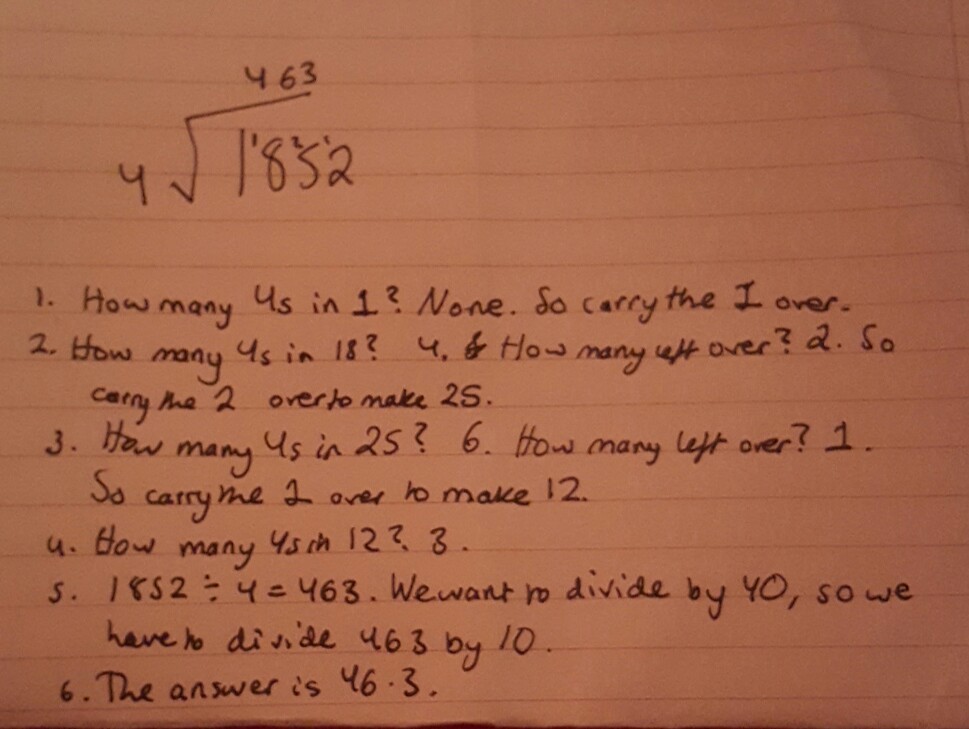 463
4 √1'8²5'2
1. How many 4s in 1? None. So carry the 1 over.
2. How many 4s in 18? 4. How many left over? 2. So
carry the 2 over to make 25.
3. How many 4s in 25? 6. How many left over? 1.
So carry the 1 over to make 12.
4. How many 4s in 12? 3.
5. 1852 ÷ 4 = 463. We want to divide by 40, so we
have to divide 463 by 10.
6. The answer is 46.3.